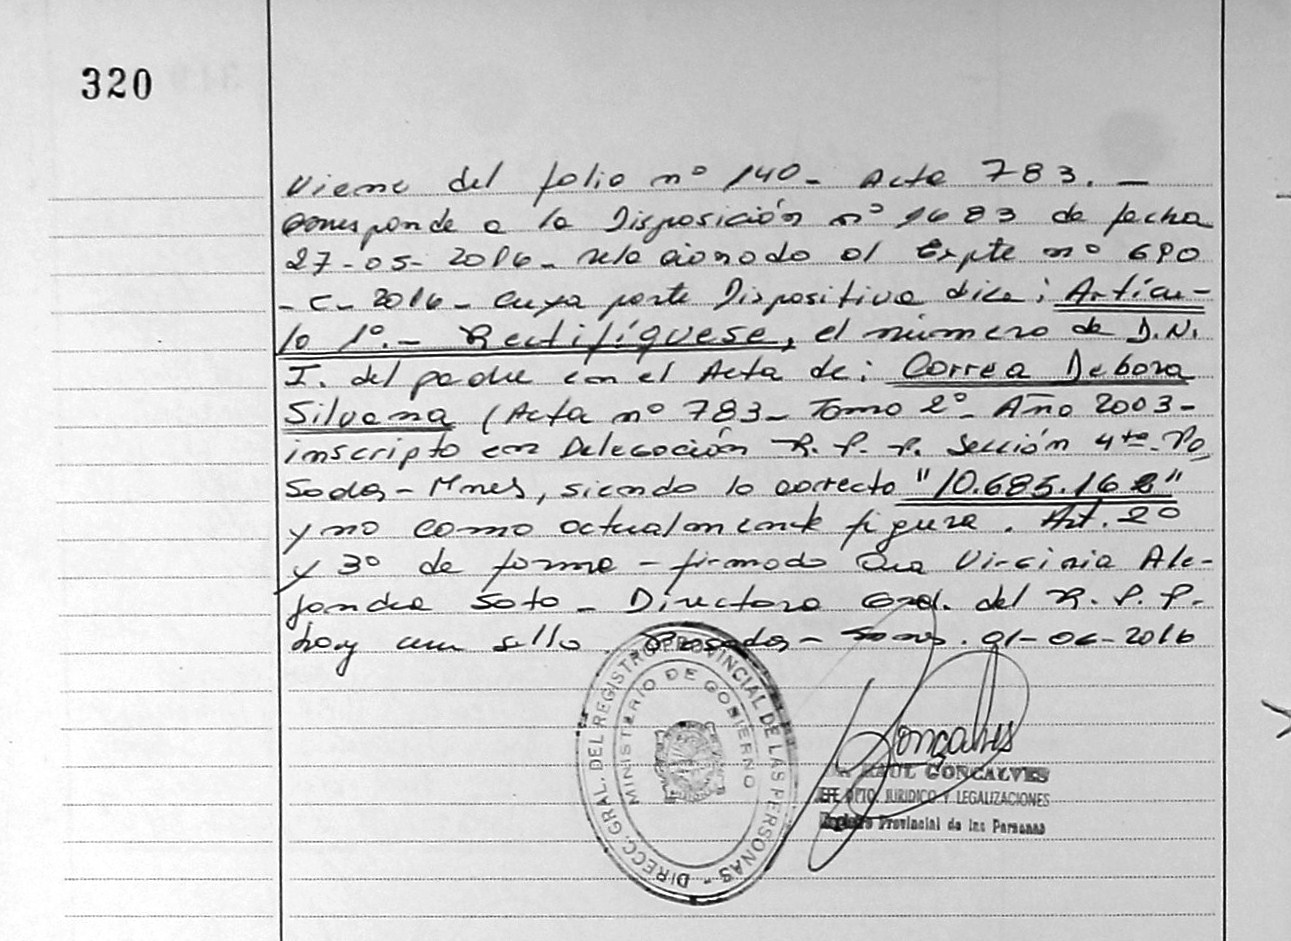 320
Viene del folio nº 140- Acta 783. -
Corresponde a la Disposición nº 1683 de fecha
27-05-2016- relacionado al Expte nº 690
- C- 2016- Cuya parte Dispositiva dice: Artícu-
lo 1º.- Rectifíquese, el número de D.N.
I. del padre en el Acta de: Correa Debora
Silvana (Acta nº 783- Tomo 2º- Año 2003-
inscripto en Delegación R. P. P. Sección 4ta- Po
sadas- Mnes, siendo lo correcto "10.685.168"
y no como actualmente figura. Art. 2º
y 3º de forma - firmado Dra Virginia Ale-
jandra Soto - Directora Gral. del R. P. P.
hay un sello. Posadas- 01-06-2016
DIRECC. GRAL. DEL REGISTRO PROVINCIAL DE LAS PERSONAS -
MINISTERIO DE GOBIERNO
Gonçalves
RAUL GONCALVES
JEFE DPTO. JURIDICO Y LEGALIZACIONES
Registro Provincial de las Personas